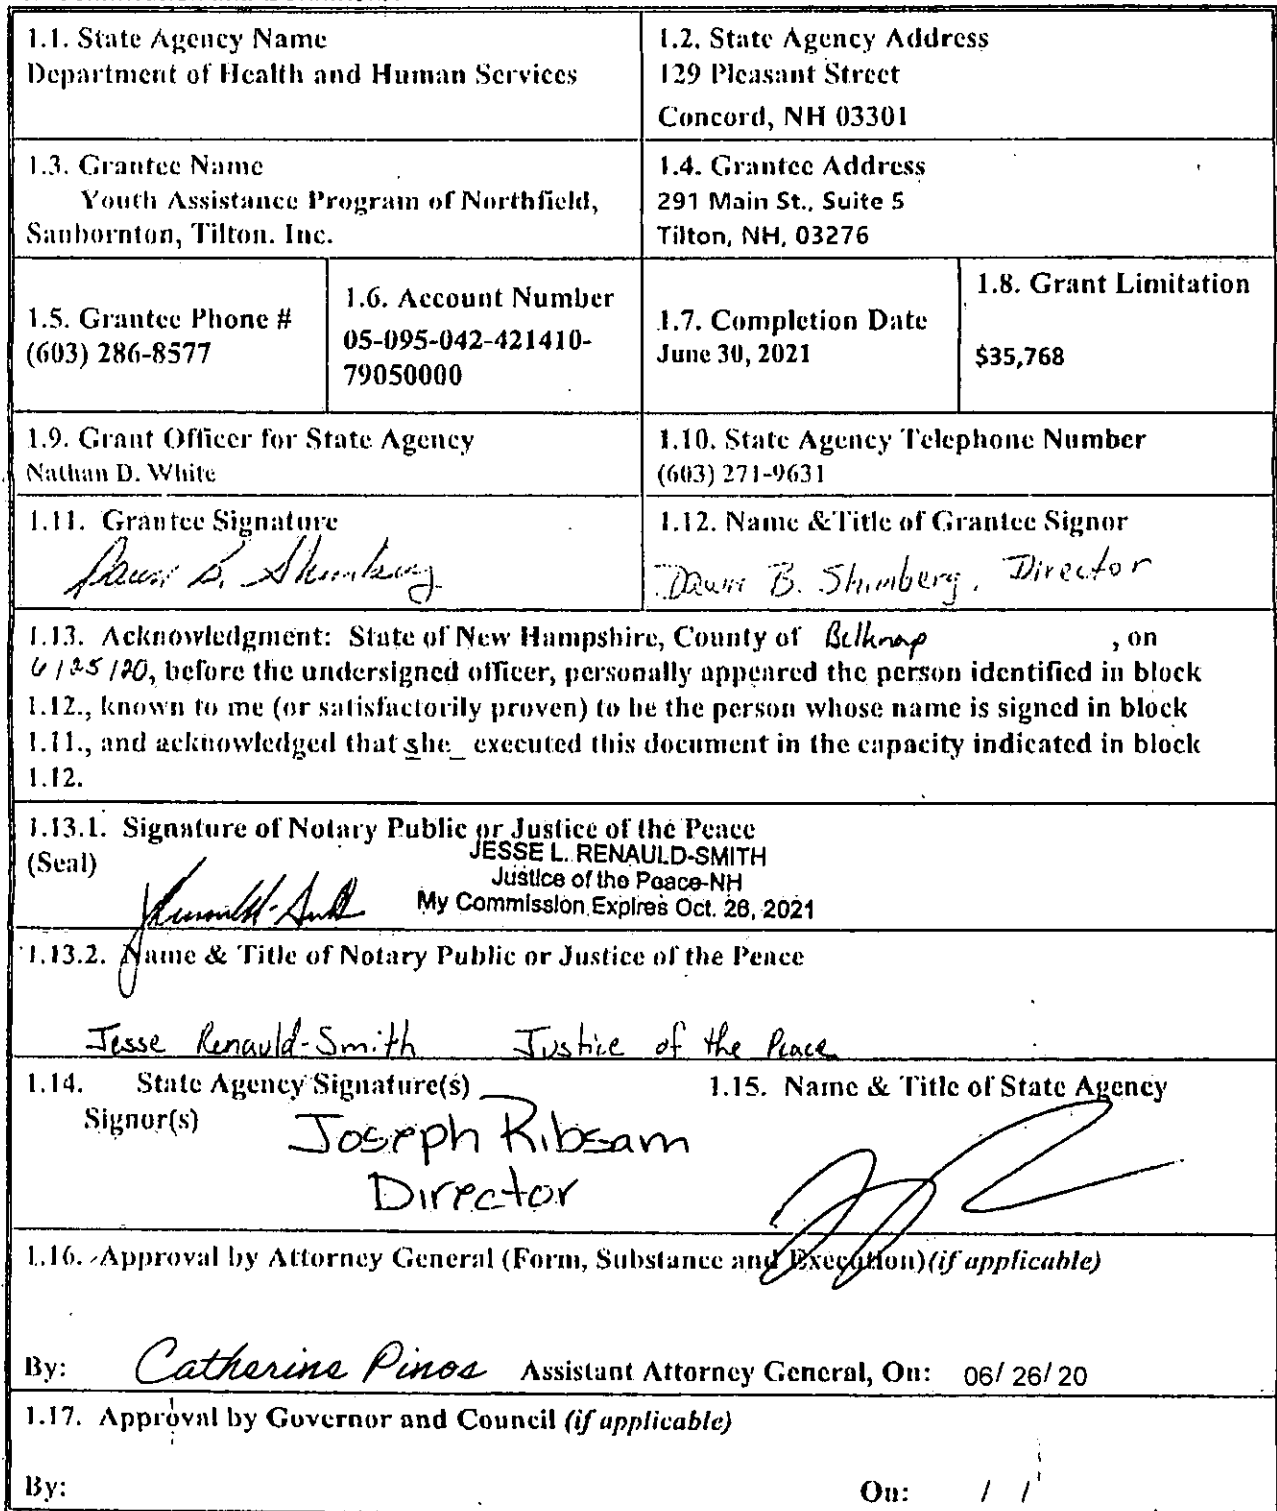 1.1. State Agency Name
Department of Health and Human Services
1.2. State Agency Address
129 Pleasant Street
Concord, NH 03301
1.3. Grantee Name
Youth Assistance Program of Northfield,
Sanbornton, Tilton. Inc.
1.4. Grantee Address
291 Main St., Suite 5
Tilton, NH, 03276
1.5. Grantee Phone #
(603) 286-8577
1.6. Account Number
05-095-042-421410-
79050000
1.7. Completion Date
June 30, 2021
1.8. Grant Limitation
$35,768
1.9. Grant Officer for State Agency
Nathan D. White
1.10. State Agency Telephone Number
(603) 271-9631
1.11. Grantee Signature
Dawn B. Shimberg
1.12. Name &Title of Grantee Signor
Dawn B. Shimberg, Director
1.13. Acknowledgment: State of New Hampshire, County of Belknap , on
6/25/20, before the undersigned officer, personally appeared the person identified in block
1.12., known to me (or satisfactorily proven) to be the person whose name is signed in block
1.11., and acknowledged that she_ executed this document in the capacity indicated in block
1.12.
1.13.1. Signature of Notary Public or Justice of the Peace
(Seal)
JESSE L. RENAULD-SMITH
Justice of the Peace-NH
My Commission Expires Oct. 26, 2021
1.13.2. Name & Title of Notary Public or Justice of the Peace
Jesse Renauld-Smith Justice of the Peace
1.14. State Agency Signature(s) 1.15. Name & Title of State Agency
Signor(s)
Joseph Ribsam
Director
1.16. Approval by Attorney General (Form, Substance and Execution)(if applicable)
By: Catherine Pinos Assistant Attorney General, On: 06/ 26/ 20
1.17. Approval by Governor and Council (if applicable)
By: On: / /